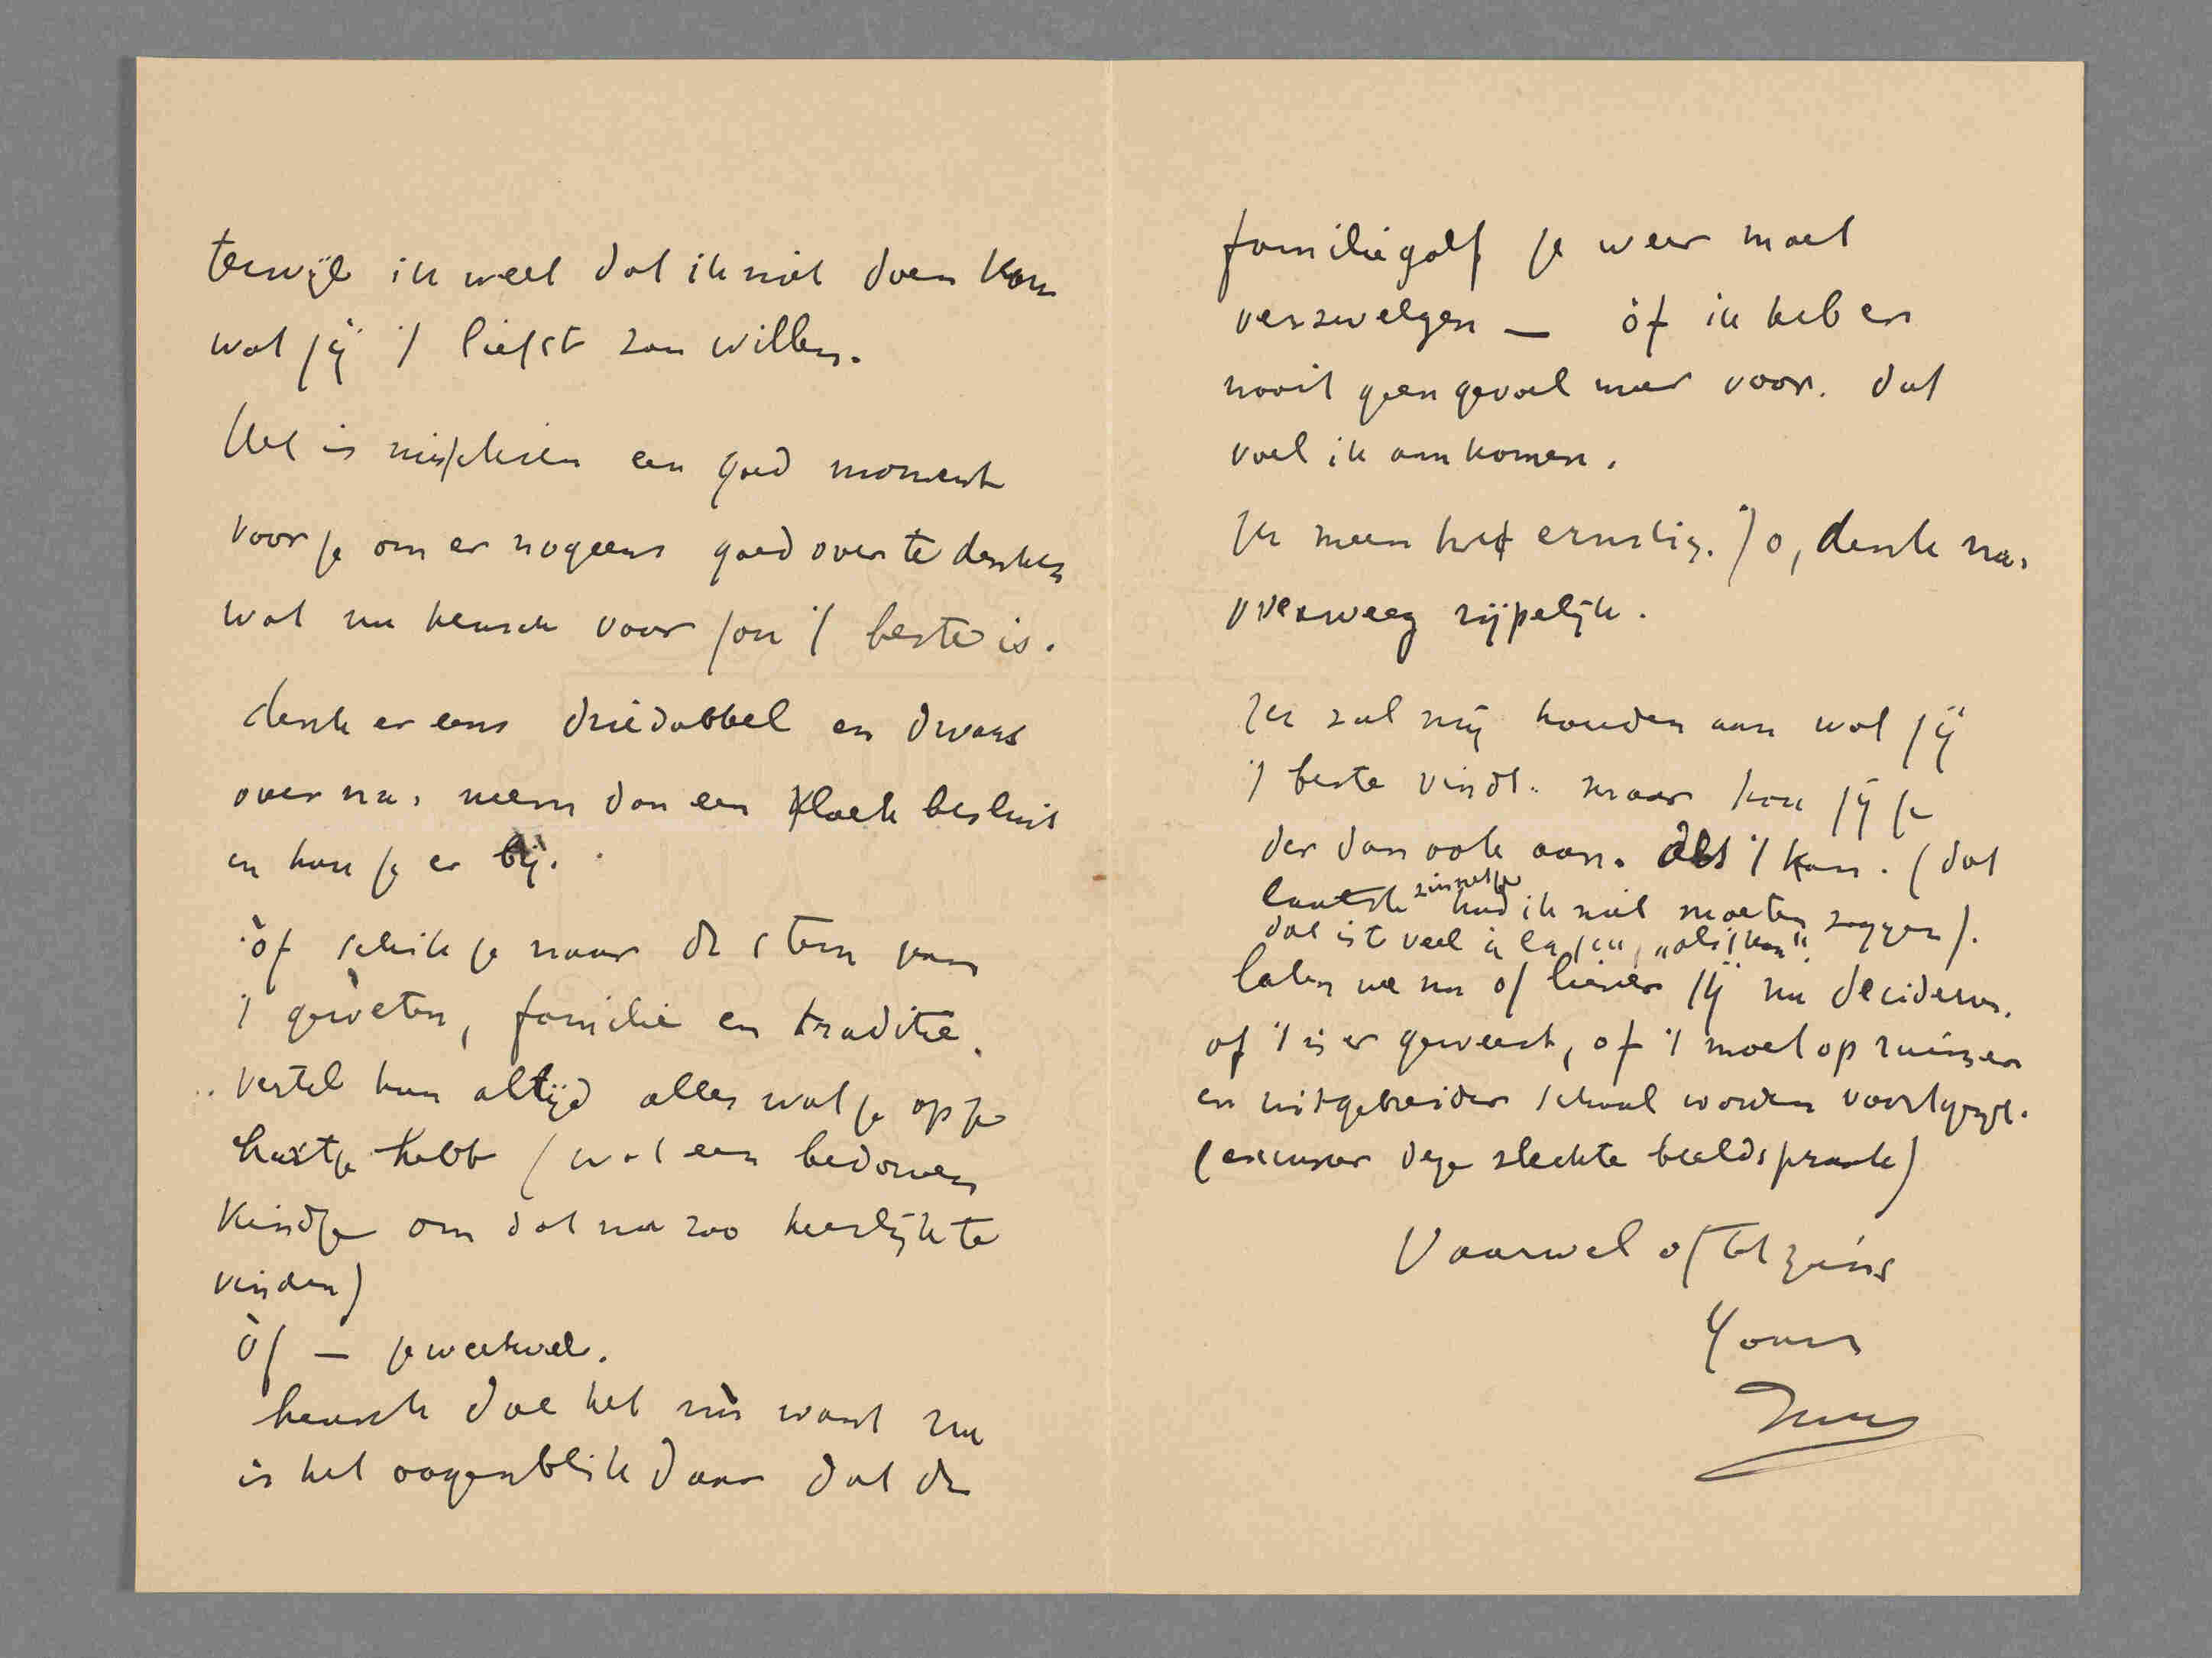 terwijl ik weet dat ik niet doen kan
wat jij 't liefst zou willen.
Het is misschien een goed moment
voor je om er nogeens goed over te denken
wat nu heusch voor jou 't beste is.
denk er eens driedobbel en dwars
over na, neem dan een kloek besluit
en hou je er bij.
òf schik je naar de stem van
't geweten, familie en traditie.
vertel hun altijd alles wat je op je
hartje hebt (wat een bedorven
kindje om dat nu zoo heerlijk te
vinden)
òf — je weet wel.
heusch doe het nù want nu
is het oogenblik daar dat de
familiegolf je weer moet
verzwelgen — òf ik heb er
nooit geen gevoel meer voor. dat
voel ik aankomen.
Ik meen het ernstig. Jo, denk na,
overweeg rijpelijk.
Ik zal mij houden aan wat jij
't beste vindt. maar hou jij je
der dan ook aan. als 't kan. (dat
laatste zinnetje had ik niet moeten zeggen).
dat is te veel à la „als 't kan".
laten we nu of liever jij nu decideren.
of 't is er geweest, of 't moet op ruimer
en uitgebreider schaal worden voortgezet.
(excuseer deze slechte beeldspraak)
Vaarwel of tot ziens
Yours